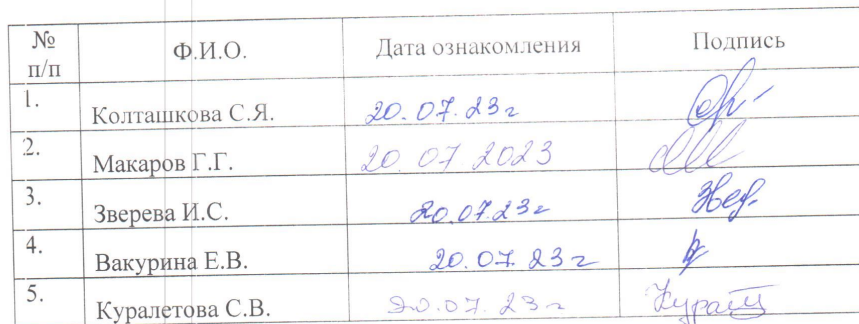 № п/п Ф.И.О. Дата ознакомления Подпись
1. Колташкова С.Я. 20.07.23г
2. Макаров Г.Г. 20.07 2023
3. Зверева И.С. 20.07.23г Звер.
4. Вакурина Е.В. 20.07.23г
5. Куралетова С.В. 20.07.23г